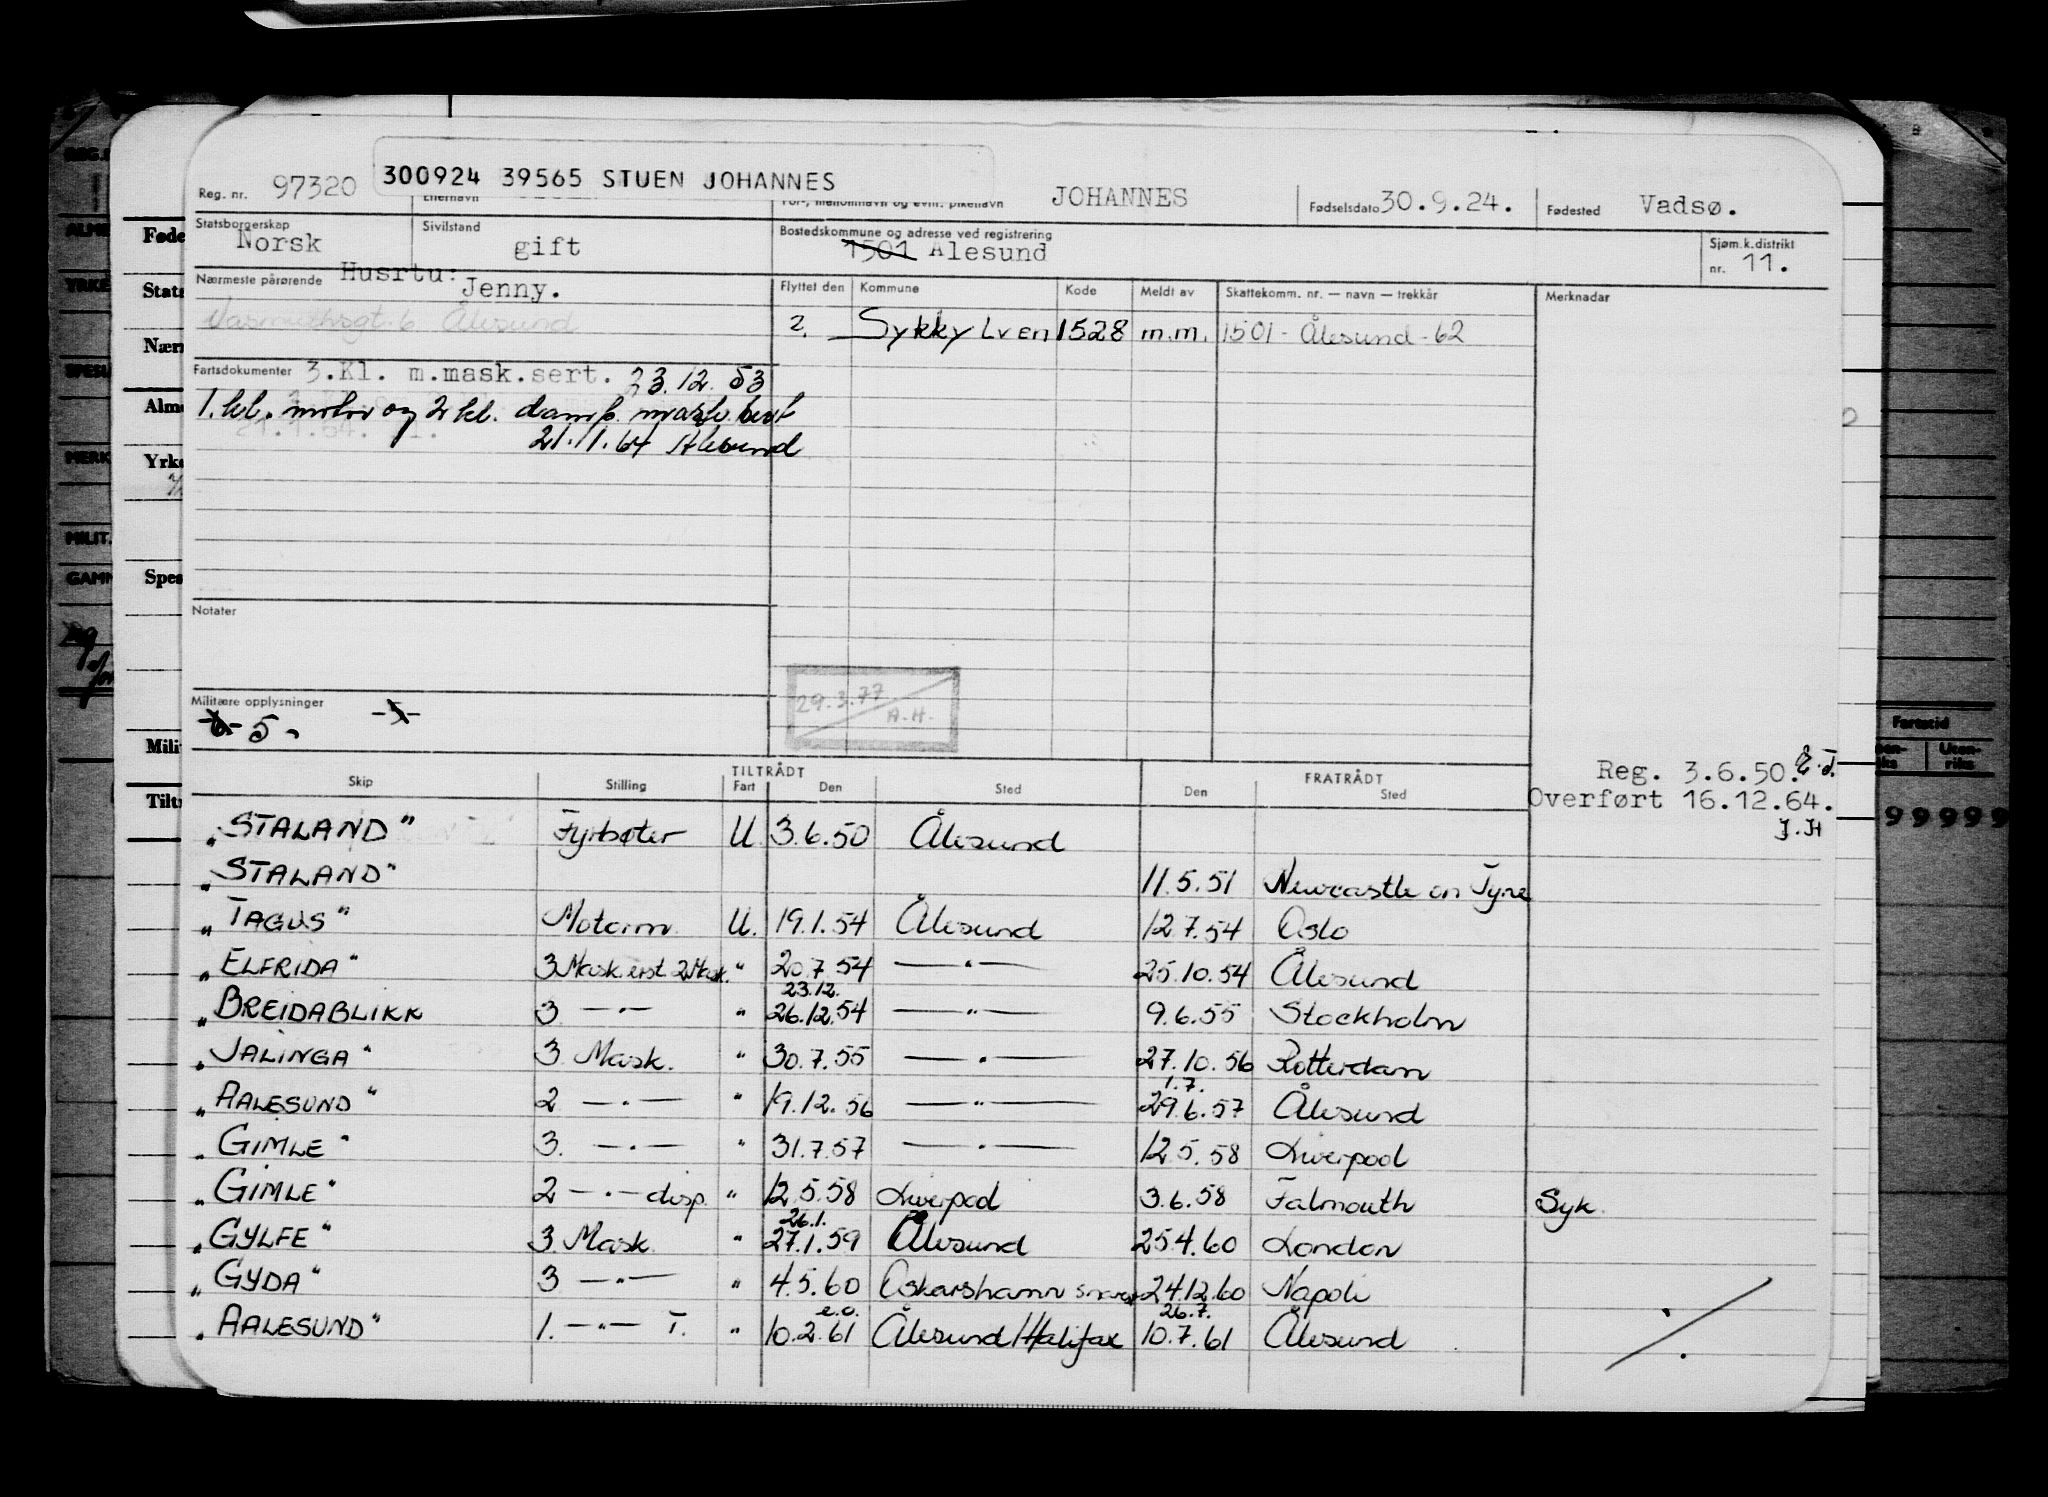 300924 39565 STUEN JOHANNES
Reg. nr. 97320 Etternavn For-, mellomnavn og evnt. pikenavn JOHANNES Fødselsdato 30.9.24. Fødested Vadsø.
Statsborgerskap Norsk Sivilstand gift Bostedskommune og adresse ved registrering 1501 Ålesund Sjøm.k.distrikt nr. 11.
Nærmeste pårørende Husrtu: Jenny. Flyttet den Kommune Kode Meldt av Skattekomm. nr. — navn — trekkår Merknadar
Ålesund
2. Sykkylven 1528 m.m. 1501 - Ålesund - 62
Fartsdokumenter 3.Kl. m.mask.sert. 23.12.53
1. kl. motor og 2 kl. damp. mask. sert
21.11.64 Ålesund
Notater
29.3.77
A.H.
Militære opplysninger
5.
Reg. 3.6.50.
Overført 16.12.64.
J.H
Skip Stilling TILTRÅDT Fart Den Sted FRATRÅDT Den Sted
„STALAND" Fyrbøter U. 3.6.50 Ålesund
„STALAND" 11.5.51 Newcastle on Tyne
„TAGUS" Motorm. U. 19.1.54 Ålesund 12.7.54 Oslo
„ELFRIDA" 3 Mask. erst. 2 Mask. " 20.7.54 —"— 25.10.54 Ålesund
„BREIDABLIKK 3 —"— " 23.12. 26.12.54 —"— 9.6.55 Stockholm
„JALINGA" 3. Mask. " 30.7.55 —"— 27.10.56 Rotterdam
„AALESUND" 2 —"— " 19.12.56 —"— 1.7. 29.6.57 Ålesund
„GIMLE" 3. —"— " 31.7.57 —"— 12.5.58 Liverpool
„GIMLE" 2 —"— disp. " 12.5.58 Liverpool 3.6.58 Falmouth Syk.
„GYLFE" 3 Mask. " 26.1. 27.1.59 Ålesund 25.4.60 London
„GYDA" 3 —"— " 4.5.60 Oskarshamn 24.12.60 Napoli
„AALESUND" 1. —"— T. " e.o. 10.2.61 Ålesund/Halifax 26.7. 10.7.61 Ålesund
Føde
Stats
Nærm
Alme
Yrke
Spes
Milit
Tiltr
Fartstid
99999